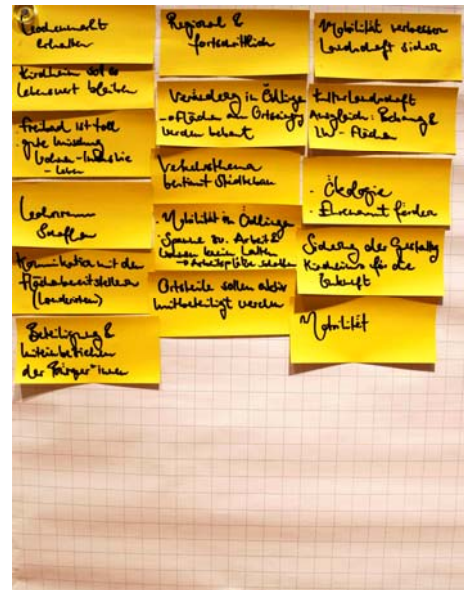 Wochenmarkt
erhalten
Kirchheim soll so
lebenswert bleiben
- Freibad ist toll
- gute Mischung
Wohnen-Industrie
- Leben
Wohnraum
schaffen
Kommunikation mit den
(Landwirten)
Beteiligung &
miteinbeziehen
der Bürger*innen
Regional &
fortschrittlich
Veränderung in Ötlingen
→ Flächen am Ortseingang
werden bebaut
Verkehrsthema
bestimmt Städtebau
- Mobilität in Ötlingen
- Spanne zw. Arbeit &
Wohnen kein halten
→ Arbeitsplätze schaffen
Ortsteile sollen aktiv
mitbeteiligt werden
Mobilität verbessern
Landschaft sichern
Kulturlandschaft
Ausgleich: Bebauung &
LW-Flächen
- Ökologie
- Ehrenamt fördern
Sicherung der Gestaltung
Kirchheims für die
Zukunft
Mobilität